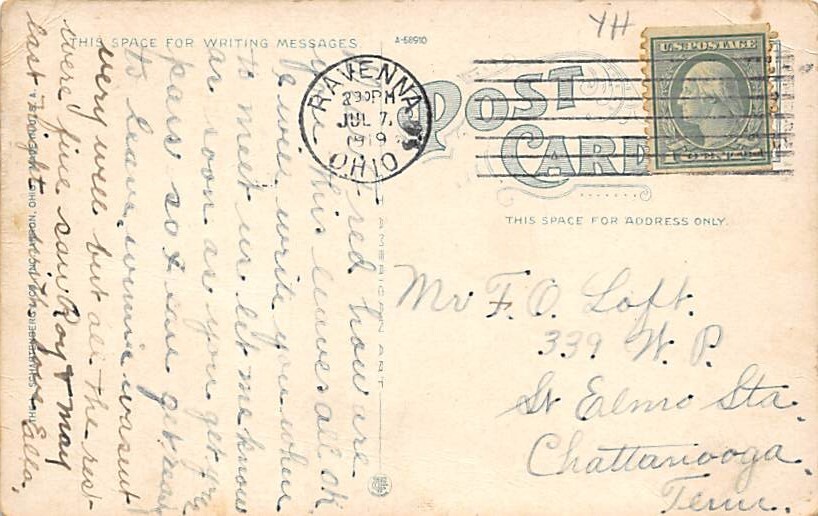 THIS SPACE FOR WRITING MESSAGES.
A-58910
YH
RAVENNA
230PM
JUL 7
1919
OHIO
U.S. POSTAGE
1 CENT 1
POST
CARD
THIS SPACE FOR ADDRESS ONLY.
AMERICAN ART
Mr F. O. Loft.
339 W. P.
St Elmo Sta.
Chattanooga,
Tenn.
red how are
you this leaves all ok
I will write you when
to meet us let me know
as soon as you get your
pass so I can get ready
to leave, Winnie wasent
very well but all the rest
were fine saw Roy & May
last night with love
Ella.